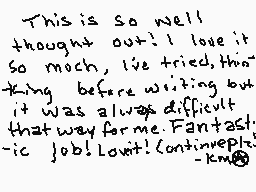 This is so well
thought out! I love it
so much, I've tried, thin-
-king before writing but
it was always difficult
that way for me. Fantast-
-ic job! Lovit! Continueplz!
-KM